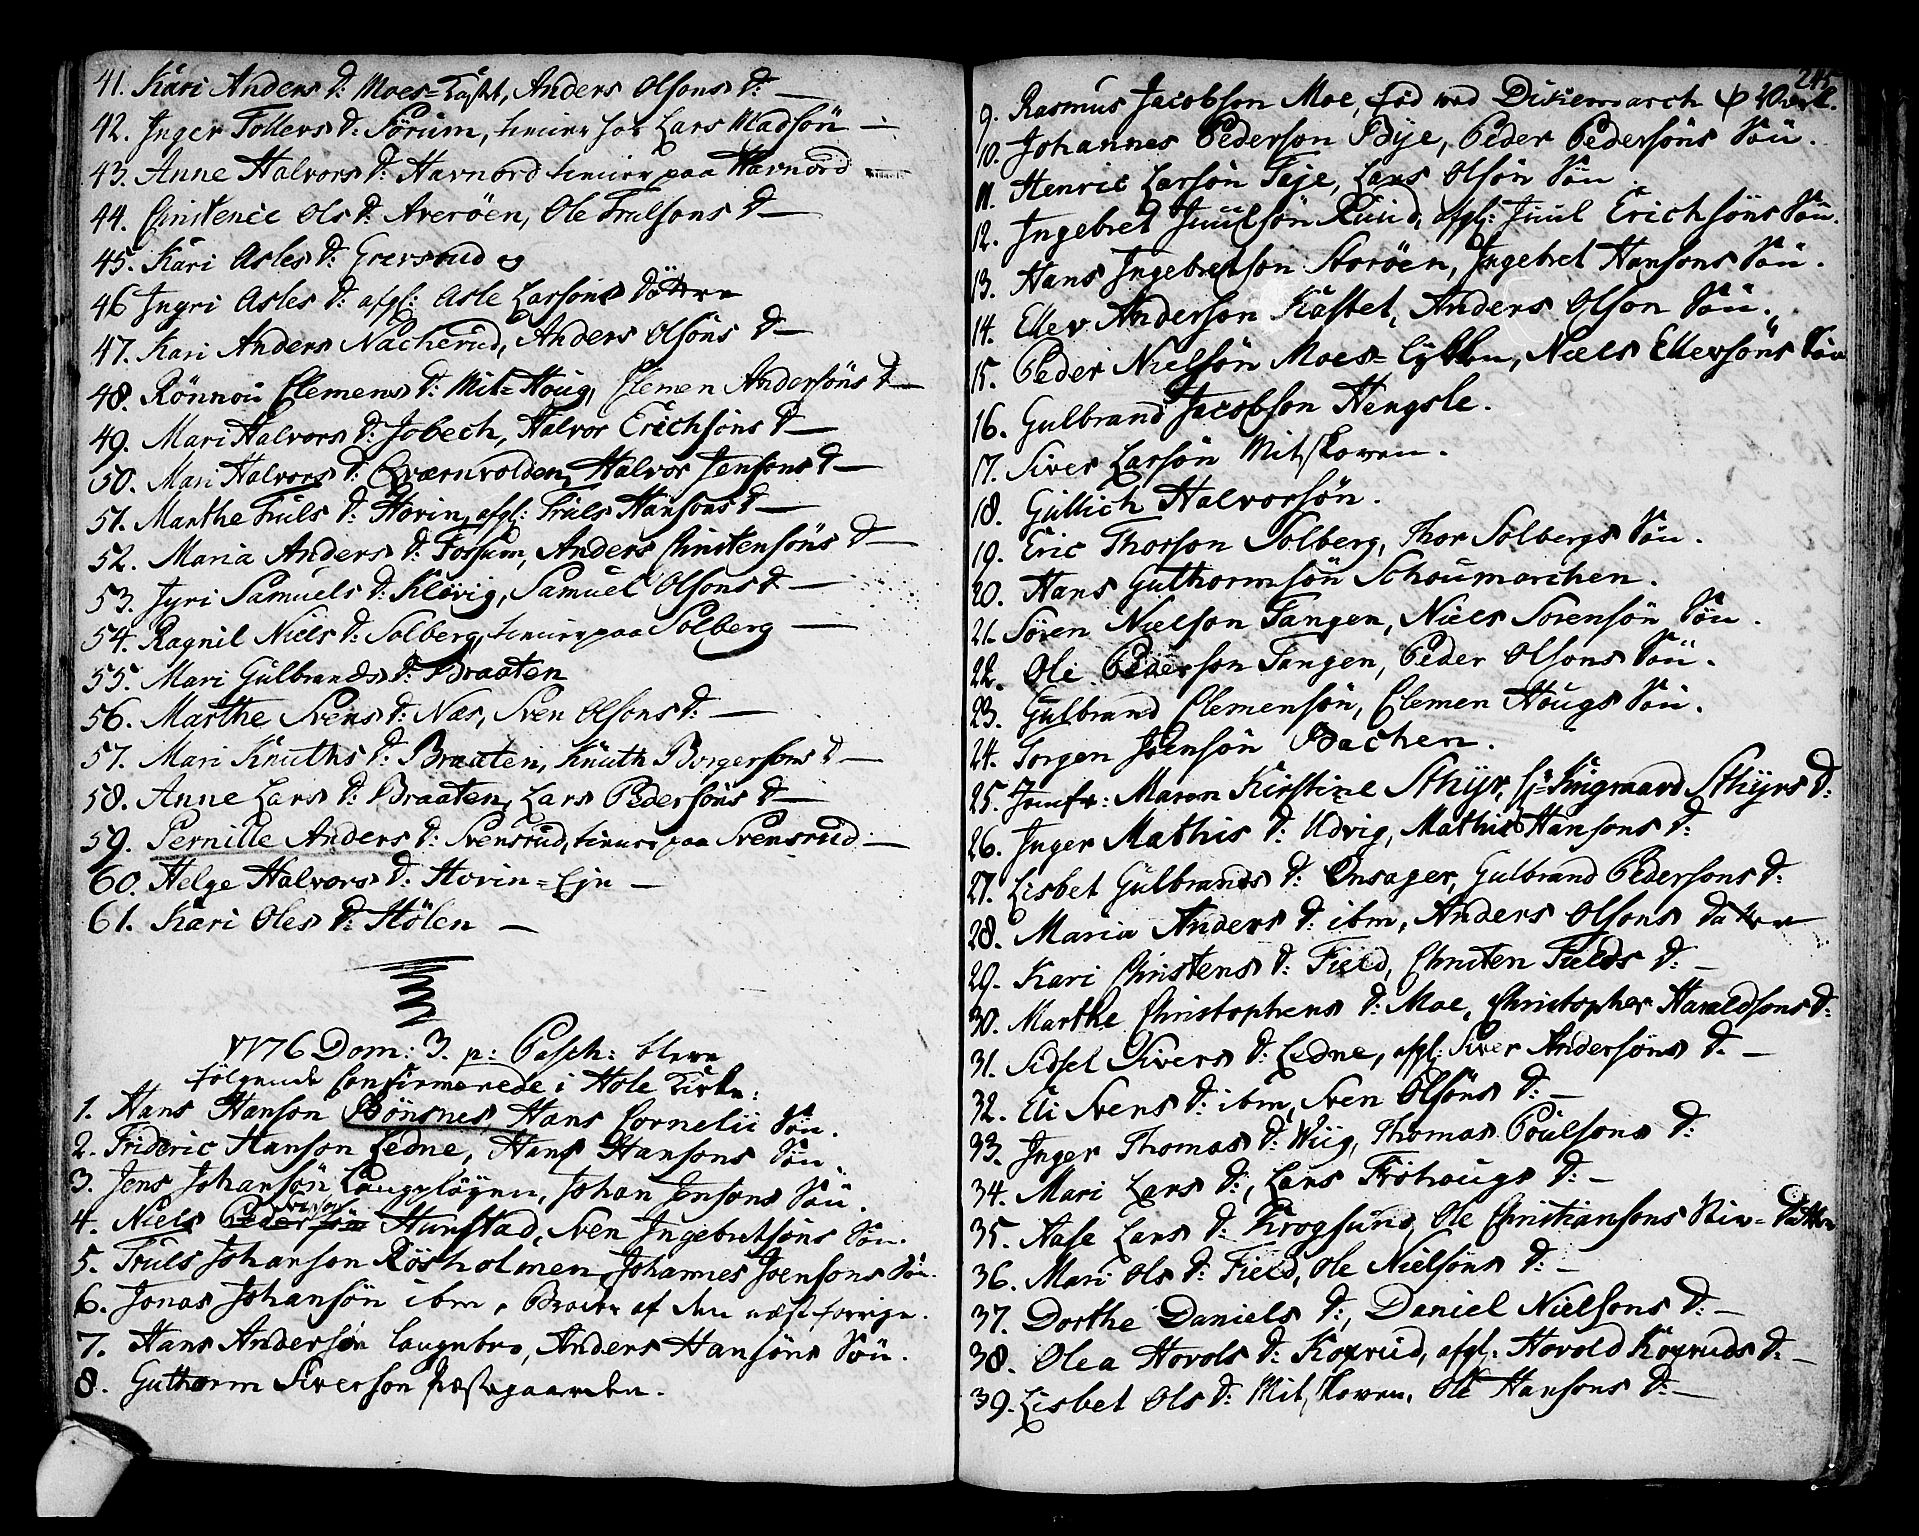 41. Kari Anders D: Moes=Kastet, Anders Olsøns D: —
42. Inger Tollers D: Sørum, tiener hos Lars Madsøn —
43. Anne Halvors D: Havnord tiener paa Havnord
44. Christence Ols D: Averøen, Ole Trulsøns D —
45. Kari Asles D: Grersrud og
46 Ingri Asles D: afgl: Asle Larsøns Døttre
47. Kari Anders Nacherud, Anders Olsøns D —
48. Rönnou Clemens D: Mit=Houg, Clemen Andersøns D —
49. Mari Halvors D: Jobech, Halvor Erichsøns D —
50. Mari Halvors D: Qværnvolden, Halvor Jensøns D —
51. Marthe Truls D: Hovin, afgl: Truls Hansøns D —
52. Maria Anders D: Fossum, Anders Christensøns D —
53. Jyri Samuels D: Kløvig, Samuel Olsøns D —
54. Ragnil Niels D: Solberg, tiener paa Solberg —
55. Mari Gulbrands D: Braaten
56. Marthe Svens D: Næs, Sven Olsøns D: —
57. Mari Knuths D: Braaten, Knuth Borgersøns D —
58. Anne Lars D: Braaten, Lars Pedersøns D —
59. Pernille Anders D: Svensrud, tiener paa Svensrud —
60. Helge Halvors D: Hovin=Eje —
61. Kari Oles D: Hölen —
1776 Dom: 3. p: Pasch: bleve
følgende Confirmerede i Hole Kirke:
1. Hans Hansøn Bönsnes, Hans Cornelii Søn.
2. Frideric Hansøn Ledne, Hans Hansøns Søn.
3. Jens Johansøn, Johan Jensøns Søn.
4. Niels Pedersøn Svensøn Hunstad, Sven Ingebretsøns Søn.
5. Truls Johansøn Røsholmen, Johannes Joensøns Søn.
6. Jonas Johansøn ibm, Broder af den næstforrige.
7. Hans Andersøn Laugebro, Anders Hansøns Søn.
8. Guthorm Siversøn Præstegaarden.
245
9. Rasmus Jacobsøn Moe, fød ved Dikemarch Værk.
10. Johannes Pedersøn Bÿe, Peder Pedersøns Søn.
11. Henric Larsøn Faje, Lars Olsøn Søn
12. Ingebret Juulsøn Ruud, afgl: Juul Erichsøns Søn.
13. Hans Ingebretsøn Storøen, Ingebret Hansøns Søn.
14. Ellev Andersøn Kastet, Anders Olsøn Søn.
15. Peder Nielsøn Moes=Eykken, Niels Ellevsøns Søn
16. Gulbrand Jacobsøn Hengsle.
17. Siver Larsøn Mitskowen.
18. Gullich Halvorsøn.
19. Eric Thorsøn Solberg, Thor Solbergs Søn.
20. Hans Guthormsøn Schoumarchen.
21. Søren Nielsøn Tangen, Niels Sørensøn Søn.
22. Ole Pedersøn Tangen, Peder Olsøns Søn.
23. Gulbrand Clemensøn, Clemen Hougs Søn.
24. Torgen Joensøn Bachen.
25. Jomfr: Maren Kirstine Sthÿr, Sr Kingmand Sthÿrs D:
26. Inger Mathis D: Udvig, Mathis Hansøns D:
27. Lisbet Gulbrands D: Onsager, Gulbrand Pedersøns D:
28. Maria Anders D: ibm, Anders Olsøns Datter
29. Kari Christens D: Field, Christen Fields D: —
30. Marthe Christophers D: Moe, Christopher Haraldsøns D:
31. Sidsel Sivers D: Ledne, afgl: Siver Andersøns D. —
32. Eli Svens D: ibm, Sven Olsøns D: —
33. Inger Thomas D: Wiig, Thomas Poulsøns D:
34. Mari Lars D:, Lars Frøhougs D: —
35. Aase Lars D: Krogsund, Ole Christiansøns Stiv=Datter
36. Mari Ols D: Field, Ole Nielsøns D: —
37. Dorthe Daniels D:, Daniel Nielsøns D: —
38. Olea Hovols D: Koxrud, afgl: Hovold Koxruds D: —
39. Lisbet Ols D: Mitskowen, Ole Hansøns D: —